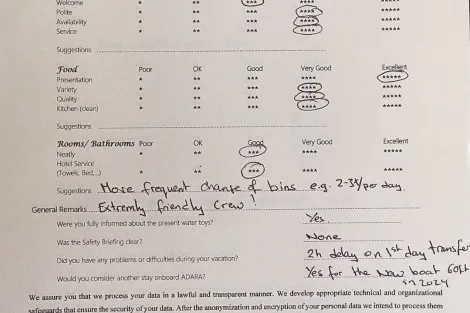 Welcome * ** *** **** *****
Polite * ** *** **** *****
Availability * ** *** **** *****
Service * ** *** **** *****
Suggestions
Food Poor OK Good Very Good Excellent
Presentation * ** *** **** *****
Variety * ** *** **** *****
Quality * ** *** **** *****
Kitchen (clean) * ** *** **** *****
Suggestions
Rooms/ Bathrooms Poor OK Good Very Good Excellent
Neatly * ** *** **** *****
Hotel Service
(Towels, Bed,...) * ** *** **** *****
Suggestions More frequent change of bins e.g. 2-3x/per day
General Remarks Extremly friendly Crew!
Were you fully informed about the present water toys? Yes
Was the Safety Briefing clear? None
Did you have any problems or difficulties during your vacation? 2h delay on 1st day transfer
Would you consider another stay onboard ADARA? Yes for the New boat 60ft
in 2024
We assure you that we process your data in a lawful and transparent manner. We develop appropriate technical and organizational
safeguards that ensure the security of your data. After the anonymization and encryption of your personal data we intend to process them